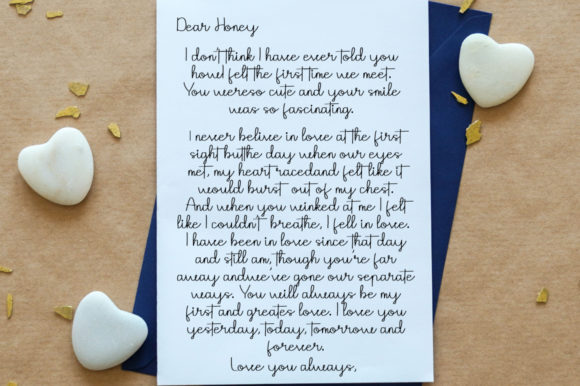 Dear Honey
I don't think I have ever told you
how I felt the first time we meet.
You wereso cute and your smile
was so fascinating.
I never belive in love at the first
sight butthe day when our eyes
met, my heart racedand felt like it
would burst out of my chest.
And when you winked at me I felt
like I couldn't breathe, I fell in love.
I have been in love since that day
and still am, though you're far
away andwe've gone our separate
ways. You will always be my
first and greates love. I love you
yesterday, today, tomorrow and
forever.
Love you always,